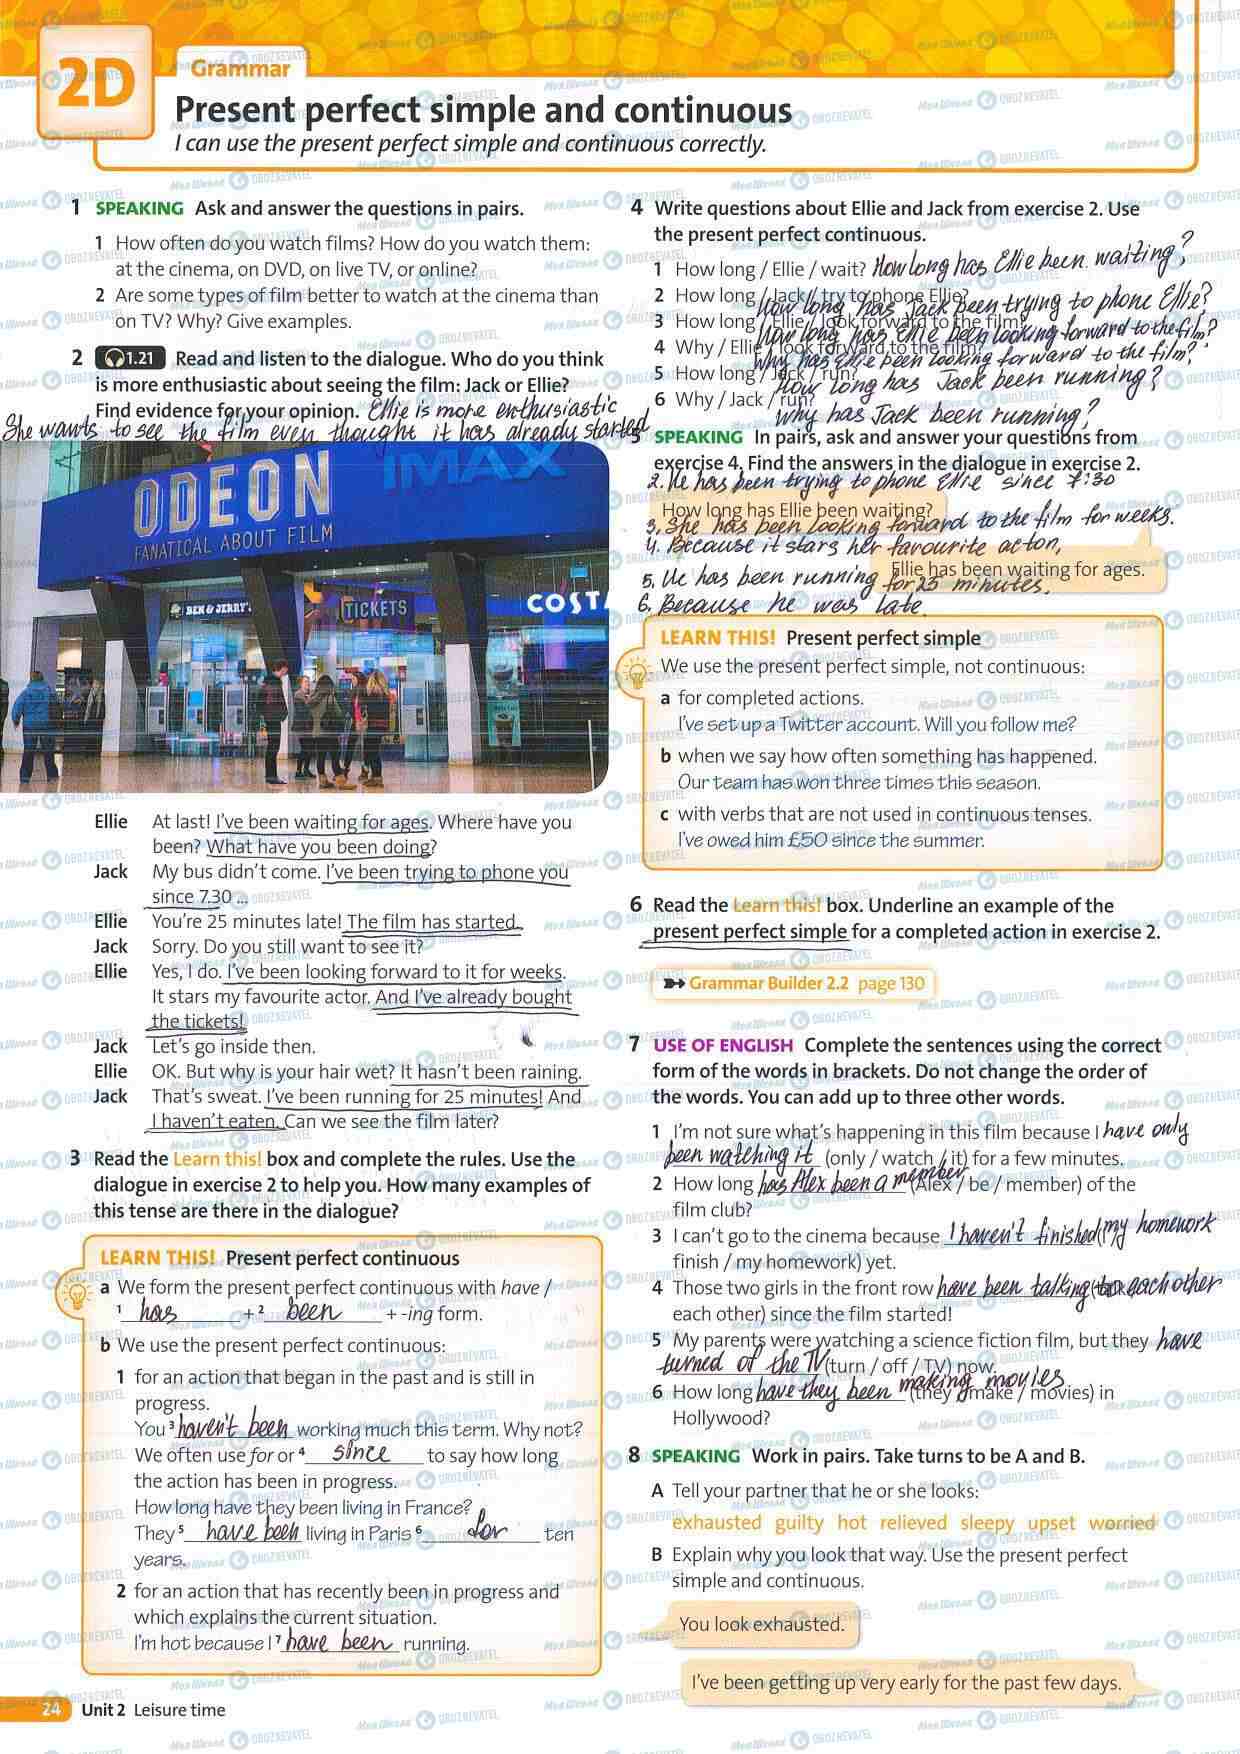 2D
Grammar
Present perfect simple and continuous
I can use the present perfect simple and continuous correctly.
1 SPEAKING Ask and answer the questions in pairs.
1 How often do you watch films? How do you watch them:
at the cinema, on DVD, on live TV, or online?
2 Are some types of film better to watch at the cinema than
on TV? Why? Give examples.
2 1.21 Read and listen to the dialogue. Who do you think
is more enthusiastic about seeing the film: Jack or Ellie?
Find evidence for your opinion. Ellie is more enthusiastic
She wants to see the film even thought it has already started
ODEON
FANATICAL ABOUT FILM
IMAX
BEN & JERRY'S
TICKETS
COSTA
Ellie At last! I've been waiting for ages. Where have you
been? What have you been doing?
Jack My bus didn't come. I've been trying to phone you
since 7.30 ...
Ellie You're 25 minutes late! The film has started.
Jack Sorry. Do you still want to see it?
Ellie Yes, I do. I've been looking forward to it for weeks.
It stars my favourite actor. And I've already bought
the tickets!
Jack Let's go inside then.
Ellie OK. But why is your hair wet? It hasn't been raining.
Jack That's sweat. I've been running for 25 minutes! And
I haven't eaten. Can we see the film later?
3 Read the Learn this! box and complete the rules. Use the
dialogue in exercise 2 to help you. How many examples of
this tense are there in the dialogue?
LEARN THIS! Present perfect continuous
a We form the present perfect continuous with have /
1 has + 2 been + -ing form.
b We use the present perfect continuous:
1 for an action that began in the past and is still in
progress.
You 3 haven't been working much this term. Why not?
We often use for or 4 since to say how long
the action has been in progress.
How long have they been living in France?
They 5 have been living in Paris 6 for ten
years.
2 for an action that has recently been in progress and
which explains the current situation.
I'm hot because I 7 have been running.
24 Unit 2 Leisure time
4 Write questions about Ellie and Jack from exercise 2. Use
the present perfect continuous.
1 How long / Ellie / wait? How long has Ellie been waiting?
2 How long / Jack / try to phone Ellie?
How long has Jack been trying to phone Ellie?
3 How long / Ellie / look forward to the film?
How long has Ellie been looking forward to the film?
4 Why / Ellie / look forward to the film?
Why has Ellie been looking forward to the film?
5 How long / Jack / run?
How long has Jack been running?
6 Why / Jack / run?
Why has Jack been running?
5 SPEAKING In pairs, ask and answer your questions from
exercise 4. Find the answers in the dialogue in exercise 2.
2. He has been trying to phone Ellie since 7:30
How long has Ellie been waiting?
3. She has been looking forward to the film for weeks.
4. Because it stars her favourite acton,
Ellie has been waiting for ages.
5. He has been running for 25 minutes.
6. Because he was late.
LEARN THIS! Present perfect simple
We use the present perfect simple, not continuous:
a for completed actions.
I've set up a Twitter account. Will you follow me?
b when we say how often something has happened.
Our team has won three times this season.
c with verbs that are not used in continuous tenses.
I've owed him £50 since the summer.
6 Read the Learn this! box. Underline an example of the
present perfect simple for a completed action in exercise 2.
Grammar Builder 2.2 page 130
7 USE OF ENGLISH Complete the sentences using the correct
form of the words in brackets. Do not change the order of
the words. You can add up to three other words.
1 I'm not sure what's happening in this film because I have only
been watching it (only / watch / it) for a few minutes.
2 How long has Alex been a member (Alex / be / member) of the
film club?
3 I can't go to the cinema because I haven't finished my homework (I /
finish / my homework) yet.
4 Those two girls in the front row have been talking to each other (talk /
each other) since the film started!
5 My parents were watching a science fiction film, but they have
turned of the TV (turn / off / TV) now.
6 How long have they been making movies (they / make / movies) in
Hollywood?
8 SPEAKING Work in pairs. Take turns to be A and B.
A Tell your partner that he or she looks:
exhausted guilty hot relieved sleepy upset worried
B Explain why you look that way. Use the present perfect
simple and continuous.
You look exhausted.
I've been getting up very early for the past few days.